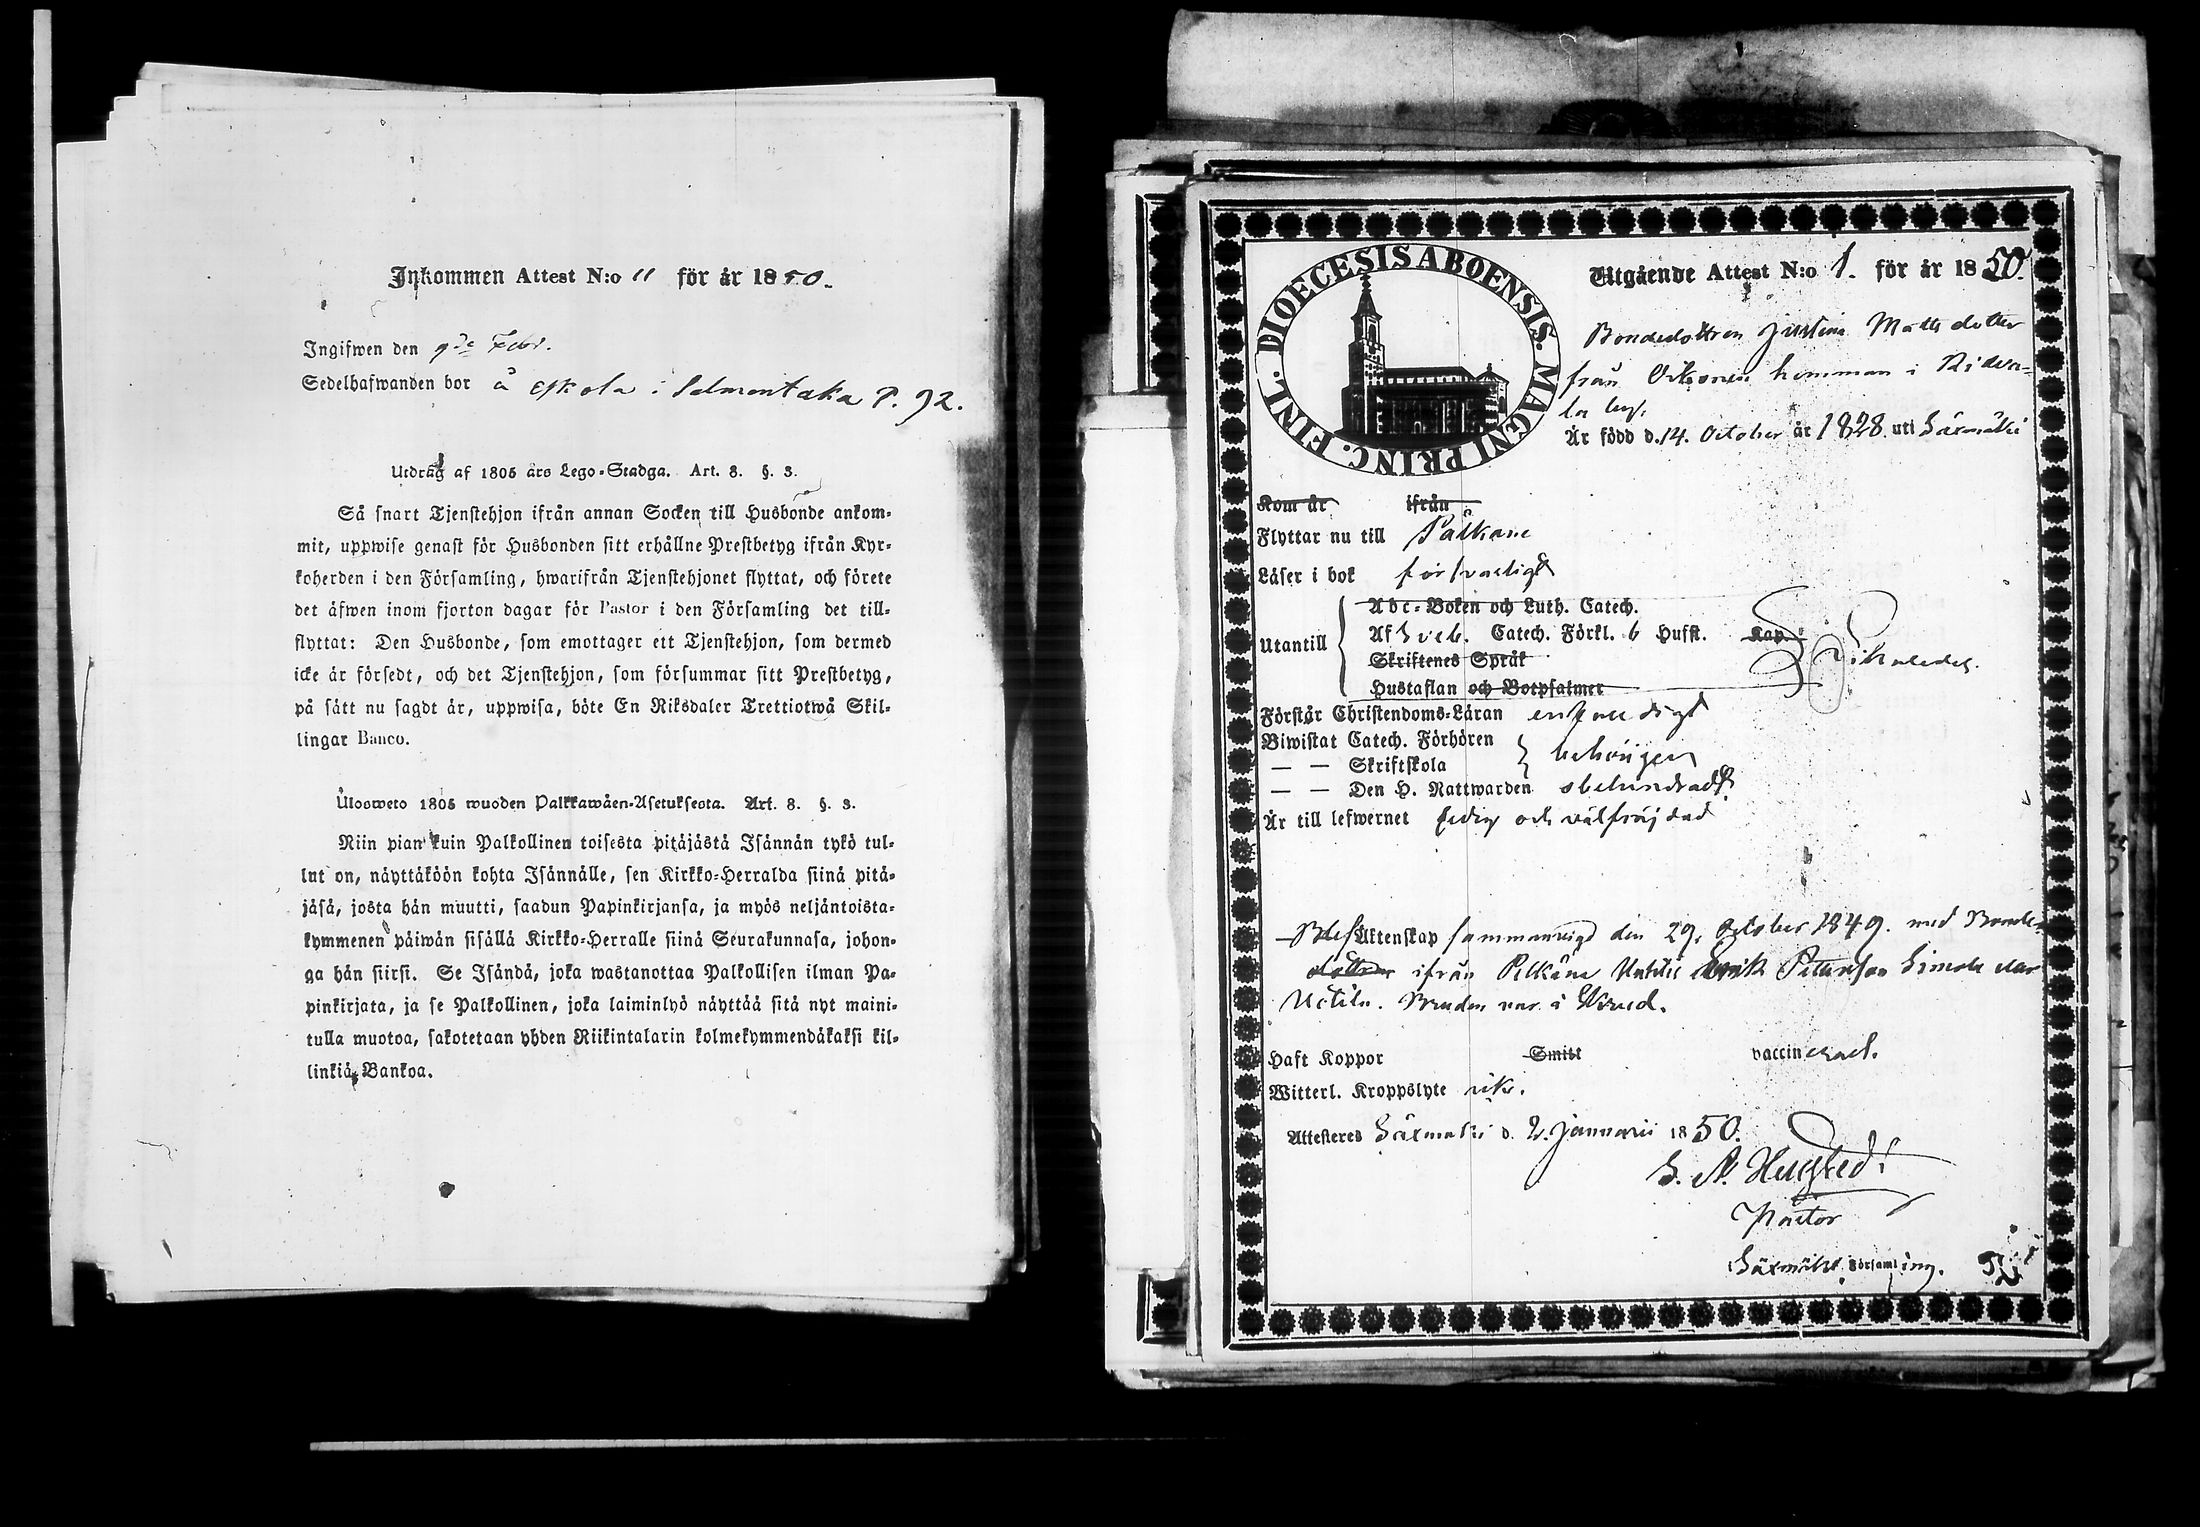 Inkommen Attest N:o 11 för år 1850.
Ingifwen den 9de Febr.
Sedelhafwanden bor å Eskola i Salmentaka P. 92.
Utdrag af 1805 års Lego-Stadga. Art. 8. §. 3.
Så snart Tjenstehjon ifrån annan Socken till Husbonde ankom-
mit, uppwise genast för Husbonden sitt erhållne Prestbetyg ifrån Kyr-
koherden i den Församling, hwarifrån Tjenstehjonet flyttat, och förete
det äfwen inom fjorton dagar för Pastor i den Församling det till-
flyttat: Den Husbonde, som emottager ett Tjenstehjon, som dermed
icke är försedt, och det Tjenstehjon, som försummar sitt Prestbetyg,
på sätt nu sagdt är, uppwisa, böte En Riksdaler Trettiotwå Skil-
lingar Banco.
Ulosweto 1805 wuoden Palkkawäen-Asetuksesta. Art. 8. §. 3.
Niin pian kuin Palkollinen toisesta pitäjästä Isännän tykö tul-
lut on, näyttäköön kohta Isännälle, sen Kirkko-Herralda siinä pitä-
jäsä, josta hän muutti, saadun Papinkirjansa, ja myös neljäntoista-
kymmenen päiwän sisällä Kirkko-Herralle siinä Seurakunnasa, johon-
ga hän siirsi. Se Isändä, joka wastanottaa Palkollisen ilman Pa-
pinkirjata, ja se Palkollinen, joka laiminlyö näyttää sitä nyt maini-
tulla muotoa, sakotetaan yhden Riikintalarin kolmekymmendäkaksi kil-
linkiä Bankoa.
DIOECESIS ABOENSIS. MAGNI PRINC. FINL.
Utgående Attest N:o 1. för år 1850.
Bondedottren Justina Matts dotter
från hemman i
by.
Är född d. 14. October år 1828. uti Säxmäki
Kom år ifrån
Flyttar nu till Pälkäne
Läser i bok försvarligt
Utantill
Abc-Boken och Luth. Catech.
Af Sveb. Catech. Förkl. 6 Hufst. Kap.
Skriftenes Språk
Hustaflan och Botpsalmer
Förstår Christendoms-Läran enfaldigt
Biwistat Catech. Förhören
— — Skriftskola behörigen
— — Den H. Nattwarden obehindradt
Är till lefwernet ledig och välfräjdad
Blef Äktenskap sammanvigd den 29. October 1849. med Bonde-
ifrån Pelkäne Erik Petterson
Uotila. Bruden var
Haft Koppor Smitt vaccinerad.
Witterl. Kroppslyte icke.
Attesteras Säxmäki d. 2. Januarii 1850.
Pastor
Säxmäki Församling.